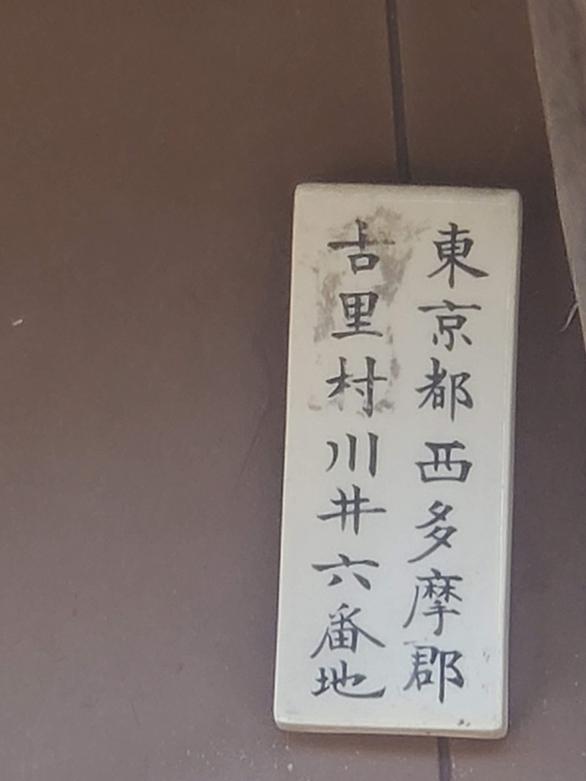 東京都西多摩郡
古里村川井六番地